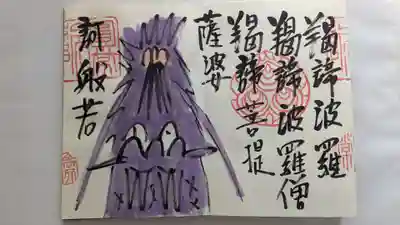 羯諦波羅
羯諦波羅僧
羯諦菩提
薩婆
訶般若